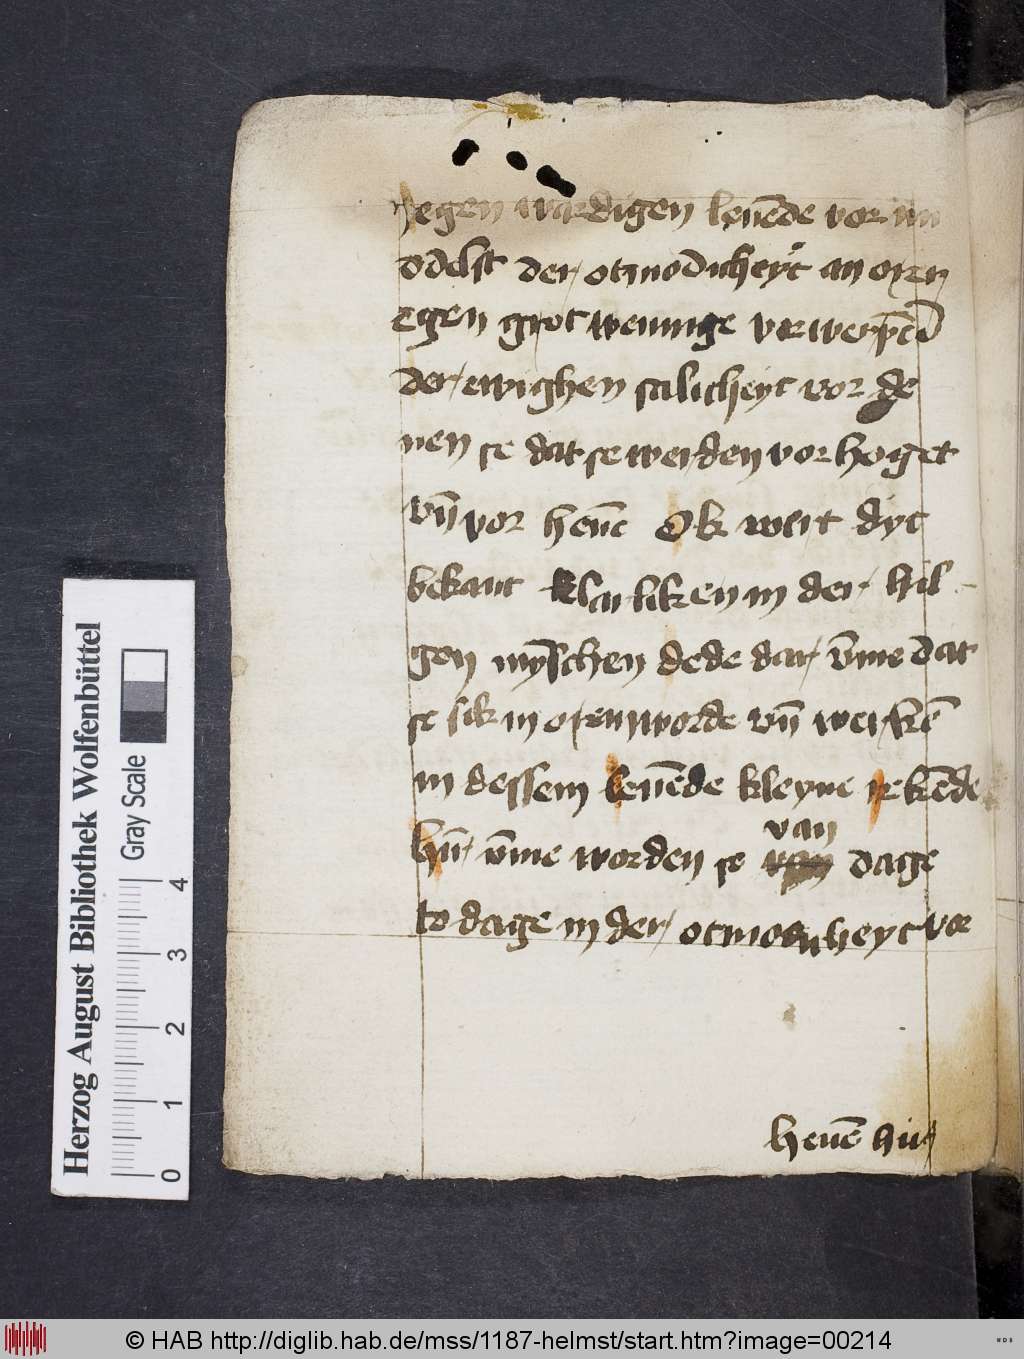 yegen wardigen leuēde vor nn
odelst der otmodicheyt an oren
egen grot weninge vorwerpēt
der ewighen salicheyt vor de
nen se dat se werden vorhoget
vn̄ vor heuē Ok wert dyt
bekant klarliken in der hil
gen mȳschen dede dar v̄me dat
se sik in oren worde vn̄ werkē
in dessem leuēde kleyne rekēde
hir v̄me worden se van dage
to dage in der otmodicheyt vor
heuē hir
Herzog August Bibliothek Wolfenbüttel
Gray Scale
0 1 2 3 4
© HAB http://diglib.hab.de/mss/1187-helmst/start.htm?image=00214